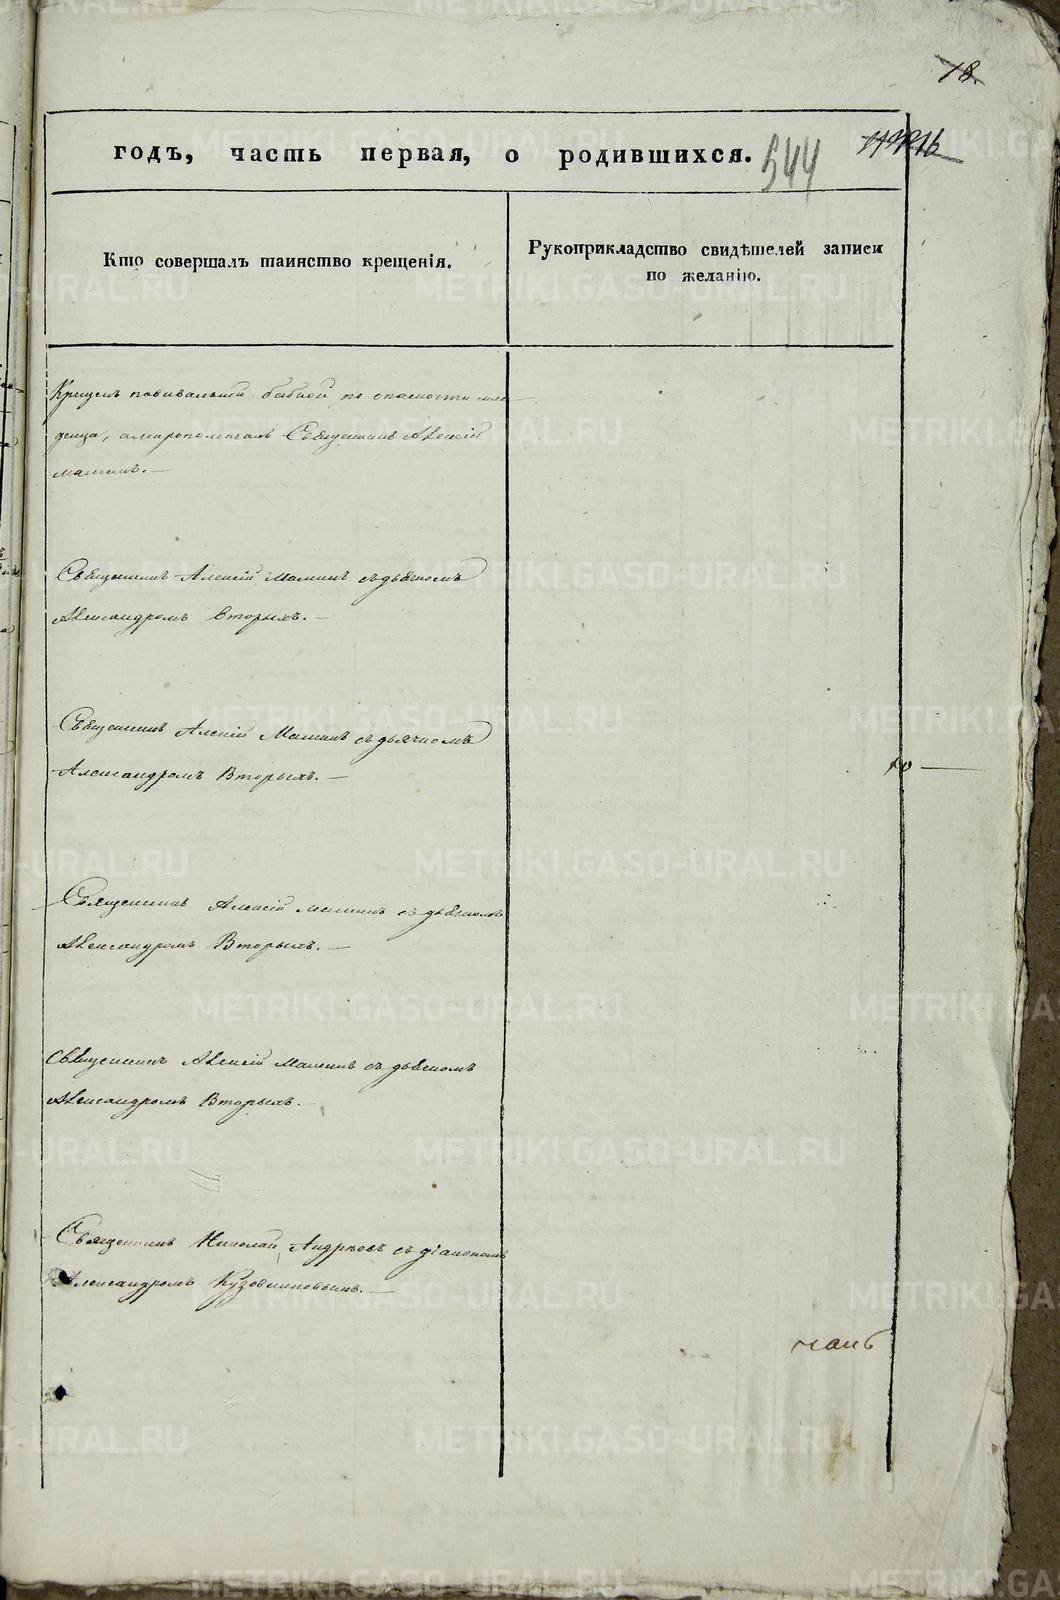 18.
16
годъ, часть первая, о родившихся.
544
Кто совершалъ таинство крещенія.
Рукоприкладство свидѣтелей записи
по желанію.
Крещенъ повивальной бабкой по опасности мла-
денца, а миропомазалъ Священникъ Алексѣй
Маминъ.—
Священникъ Алексѣй Маминъ съ дьячкомъ
Александромъ Вторыхъ.—
Священникъ Алексѣй Маминъ съ дьячкомъ
Александромъ Вторыхъ.—
Священникъ Алексѣй Маминъ съ дьячкомъ
Александромъ Вторыхъ.—
Священникъ Алексѣй Маминъ съ дьячкомъ
Александромъ Вторыхъ.—
Священникъ Николай Андреевъ съ діакономъ
Александромъ Кузовниковымъ.—
METRIKI.GASO-URAL.RU